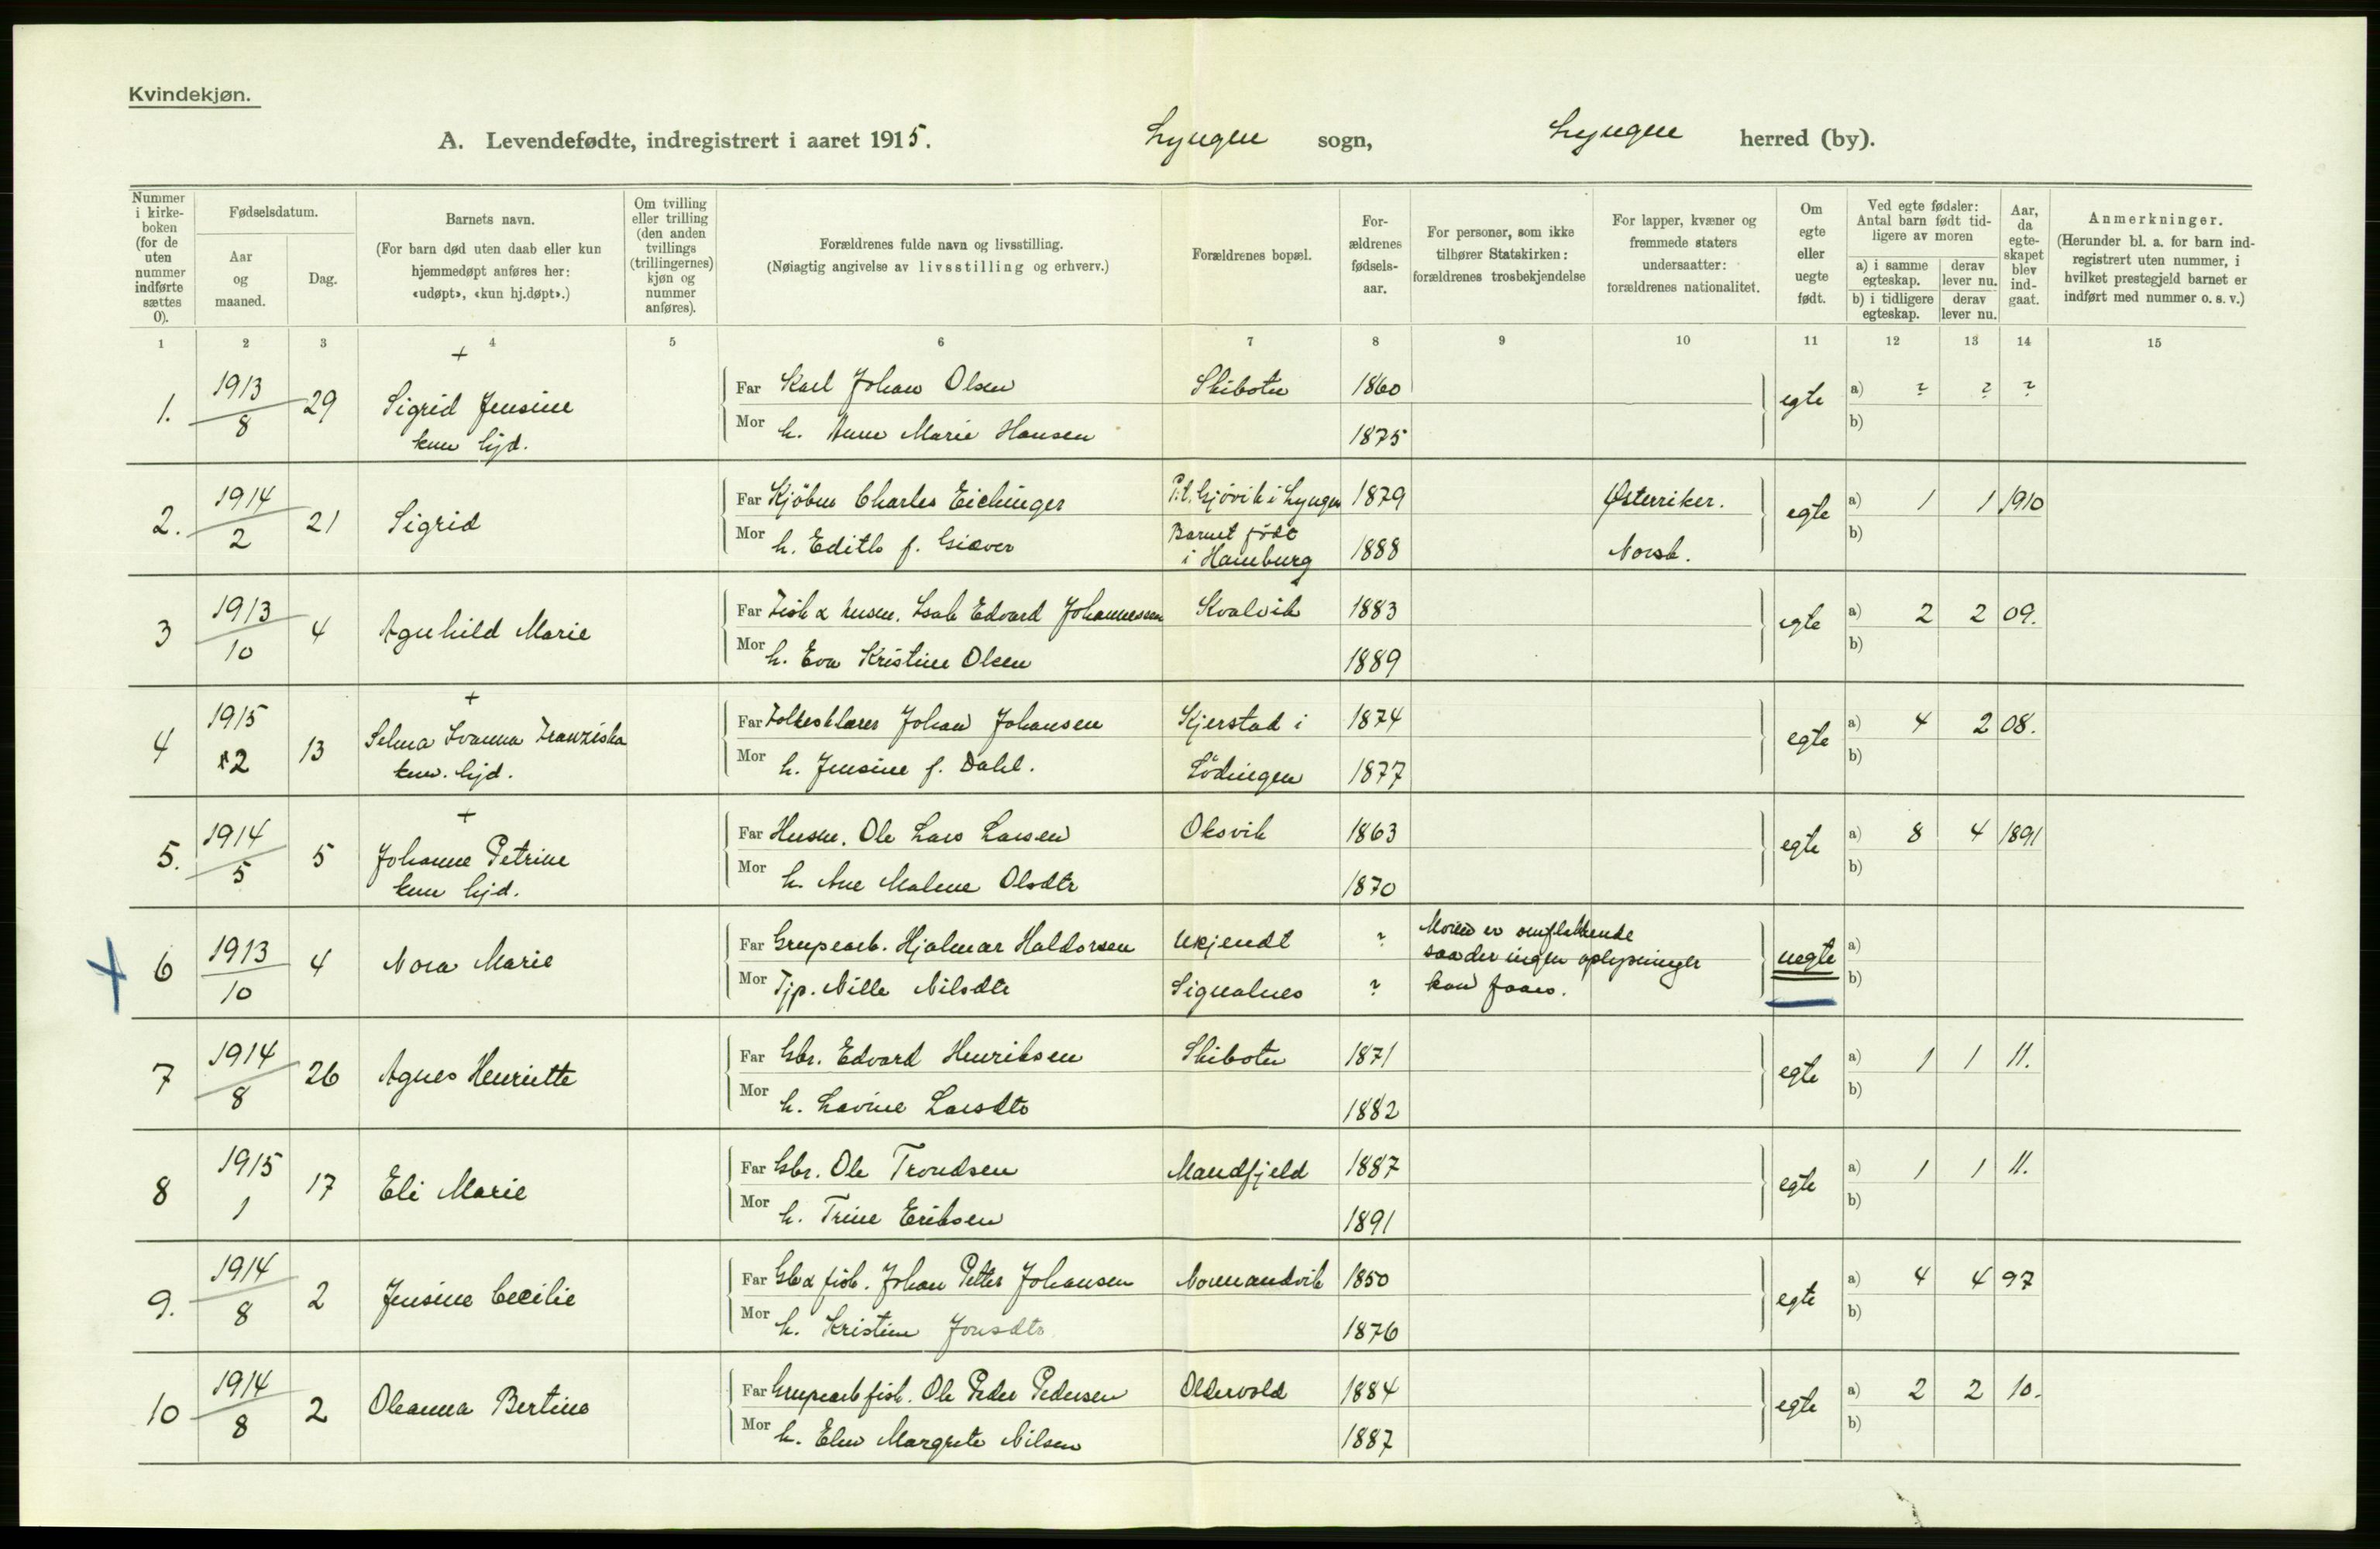 Kvindekjøn.
A. Levendefødte, indregistrert i aaret 1915. Lyngen sogn, Lyngen herred (by).
Nummer i kirke-boken (for de uten nummer indførte sættes 0).
Fødselsdatum.
Aar og maaned.
Dag.
Barnets navn.
(For barn død uten daab eller kun hjemmedøpt anføres her: «udøpt», «kun hj.døpt».)
Om tvilling eller trilling (den anden tvillings (trillingernes) kjøn og nummer anføres).
Forældrenes fulde navn og livsstilling.
(Nøiagtig angivelse av livsstilling og erhverv.)
Forældrenes bopæl.
For-ældrenes fødsels-aar.
For personer, som ikke tilhører Statskirken: forældrenes trosbekjendelse
For lapper, kvæner og fremmede staters undersaatter: forældrenes nationalitet.
Om egte eller uegte født.
Ved egte fødsler: Antal barn født tid-ligere av moren
a) i samme egteskap. derav lever nu.
b) i tidligere egteskap. derav lever nu.
Aar, da egte-skapet blev ind-gaat.
Anmerkninger.
(Herunder bl. a. for barn ind-registrert uten nummer, i hvilket prestegjeld barnet er indført med nummer o. s. v.)
1 2 3 4 5 6 7 8 9 10 11 12 13 14 15
+
1. 1913 8 29 Sigrid Jensine Far Karl Johan Olsen Skibotn 1860 egte a) ? ? ?
kun hjd. Mor h. Anne Marie Hansen 1875 b)
2. 1914 2 21 Sigrid Far Kjöbm Charles Eichinger P.t. Gjövik i Lyngen 1879 Østerriker. egte a) 1 1 1910
Mor h. Edith f. Giæver Barnet födt i Hamburg 1888 Norsk. b)
3 1913 10 4 Agnhild Marie Far Fisk & husm. Isak Edvard Johannessen Kvalvik 1883 egte a) 2 2 09.
Mor h. Eva Kristine Olsen 1889 b)
+
4 1915 2 13 Selma Ivanna Franziska Far Folkesklærer Johan Johansen Kjerstad i 1874 egte a) 4 2 08.
kun. hjd. Mor h. Jensine f. Dahl. Lödingen 1877 b)
+
5. 1914 5 5 Johanne Petrine Far Husm. Ole Lars Larsen Oksvik 1863 egte a) 8 4 1891
kun hjd. Mor h. Ane Malene Olsdtr 1870 b)
+ 6 1913 10 4 Nora Marie Far Grupearb. Hjalmar Haldorsen Ukjendt ? Moren er omflakkende saa der ingen oplysninger kan faaes. uegte a)
Mor Tjp. Nille Nilsdtr Signalnes ? b)
7 1914 8 26 Agnes Henriette Far Gbr. Edvard Henriksen Skibotn 1871 egte a) 1 1 11.
Mor h. Lavine Larsdtr 1882 b)
8 1915 1 17 Eli Marie Far Gbr. Ole Trondsen Mandfjeld 1887 egte a) 1 1 11.
Mor h. Trine Eriksen 1891 b)
9. 1914 8 2 Jensine Cecilie Far Gb & fisk. Johan Petter Johansen Normandvik 1850 egte a) 4 4 97
Mor h. Kristine Jonsdtr 1876 b)
10 1914 8 2 Oleanna Bertine Far Grupearb fisk. Ole Peder Pedersen Oldervold 1884 egte a) 2 2 10.
Mor h. Elen Margrete Nilsen 1887 b)